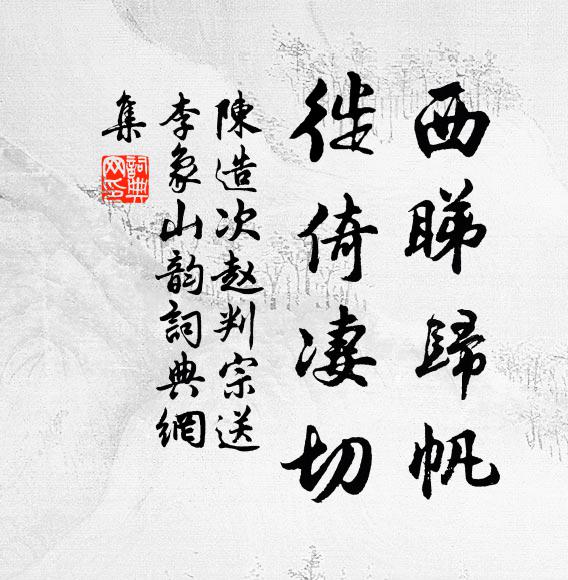 西睇歸帆
徙倚凄切
陳造次赵判宗送
李象山韵詞典網
集
詞典网印